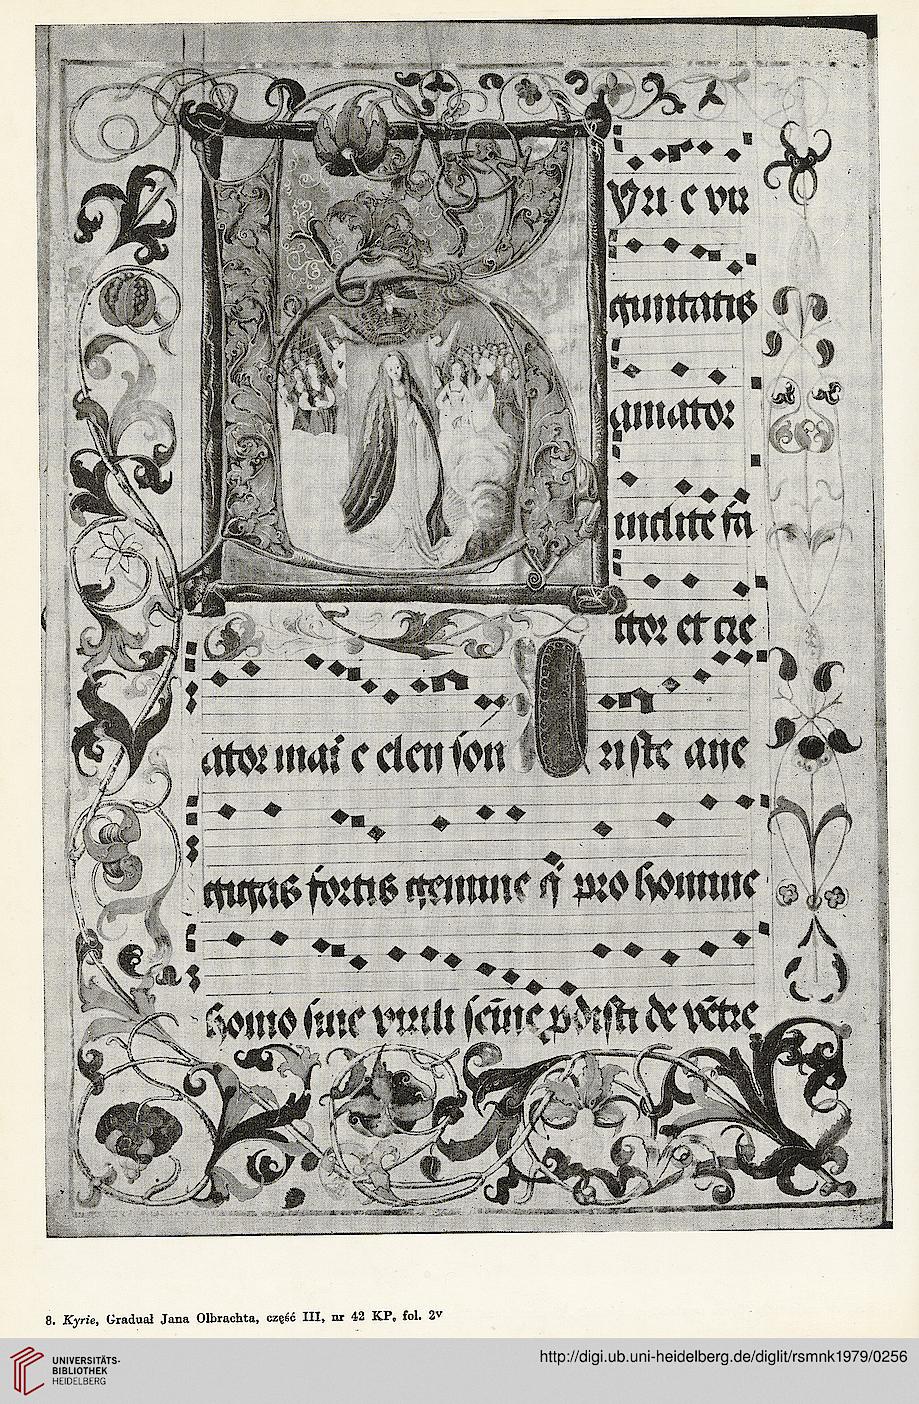 K yri e vir
ginitatis
amator
inclite fā
ctor et cre
ator mar̄ e eleyson riste aue
gygas fortis gemine q̄ pro homine
homo sine virili sēīe pdisti de vētre
8. Kyrie, Graduał Jana Olbrachta, część III, nr 42 KP, fol. 2v
UNIVERSITÄTS-
BIBLIOTHEK
HEIDELBERG
http://digi.ub.uni-heidelberg.de/diglit/rsmnk1979/0256